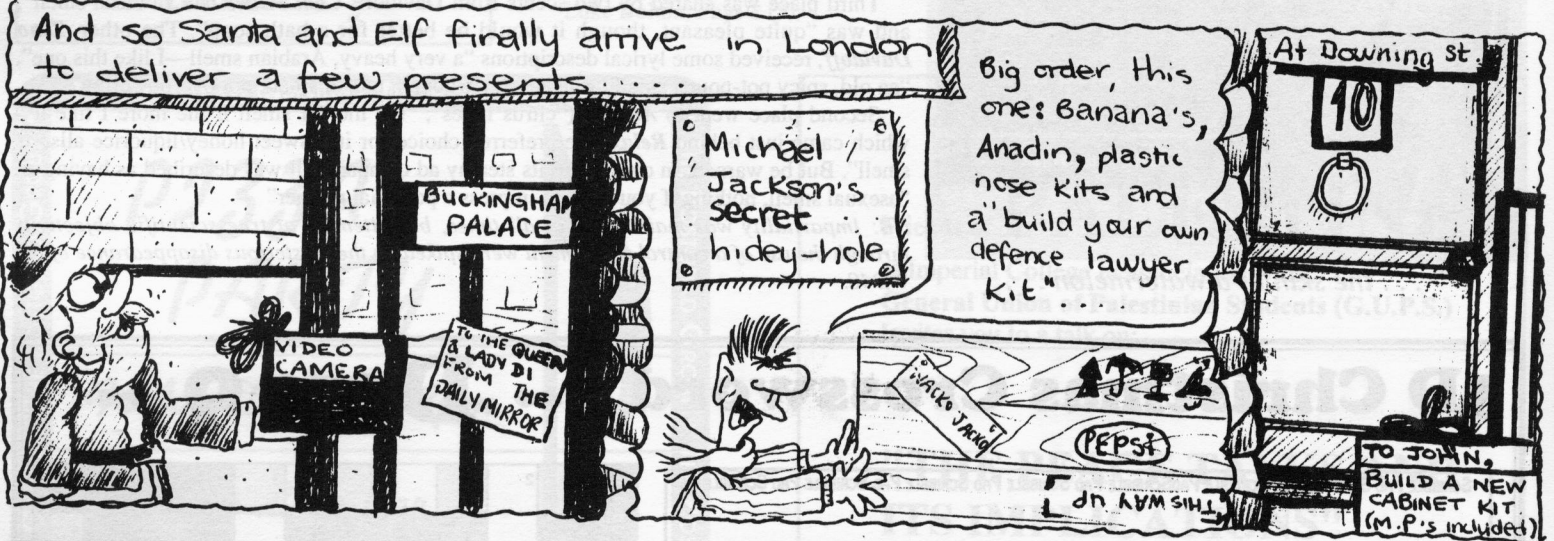 And so, Santa and Elf finally arrive in London
to deliver a few presents
BUCKINGHAM
PALACE
VIDEO
CAMERA
TO THE QUEEN
& LADY DI
FROM THE
DAILY MIRROR
Michael
Jackson's
secret
hidey-hole
Big order, this
one: Banana's,
Anadin, plastic
nose kits and
a "build your own
defence lawyer
kit."
WACKO JACKO
PEPSI
THIS WAY UP
At Downing St.
10
TO JOHN,
BUILD A NEW
CABINET KIT
(M.P's included)